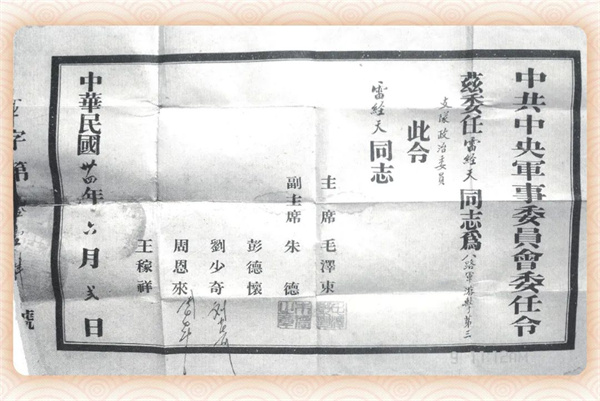 中共中央軍事委員會委任令
茲委任雷經天同志爲八路軍游擊第三
支隊政治委員
此令
雷經天同志
主席毛澤東
副主席朱德
彭德懷
劉少奇
周恩來
王稼祥
中華民國卅四年六月弍日
字第號